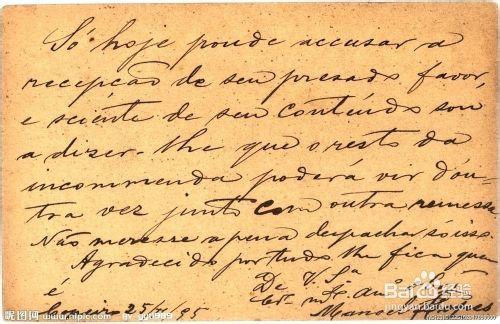 Só hoje poude accusar a
recepção de seu presado favor,
e sciente de seu contéudo sou
a dizer-lhe que o resto da
incommenda poderá vir d'ou-
tra vez junto com outra remessa
Não merese a pena despachar só isso.
Agradecido por tudo lhe fica quem
é
De V. S.ª
25 95
昵图网 www.nipic.com
Baidu 经验